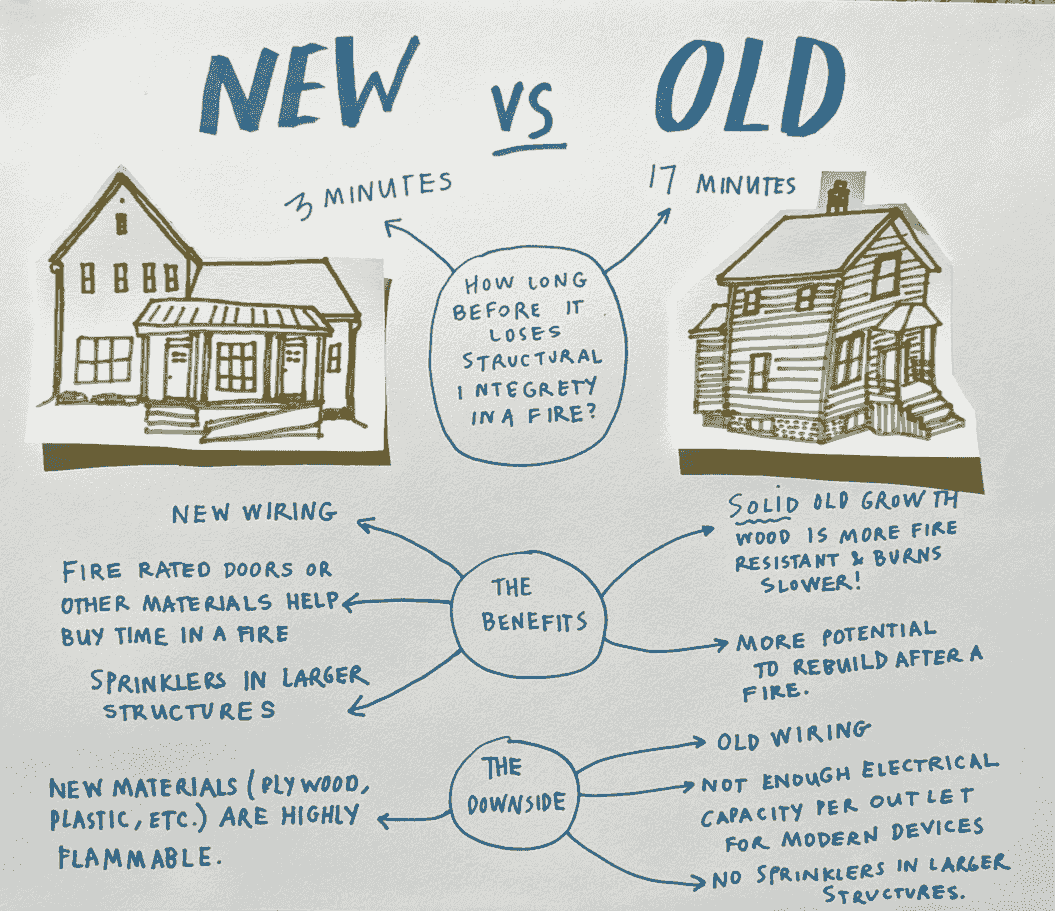 NEW VS OLD
3 MINUTES
17 MINUTES
HOW LONG
BEFORE IT
LOSES
STRUCTURAL
INTEGRETY
IN A FIRE?
NEW WIRING
FIRE RATED DOORS OR
OTHER MATERIALS HELP
BUY TIME IN A FIRE
SPRINKLERS IN LARGER
STRUCTURES
THE
BENEFITS
SOLID OLD GROWTH
WOOD IS MORE FIRE
RESISTANT & BURNS
SLOWER!
MORE POTENTIAL
TO REBUILD AFTER A
FIRE.
NEW MATERIALS (PLYWOOD,
PLASTIC, ETC.) ARE HIGHLY
FLAMMABLE.
THE
DOWNSIDE
OLD WIRING
NOT ENOUGH ELECTRICAL
CAPACITY PER OUTLET
FOR MODERN DEVICES
NO SPRINKLERS IN LARGER
STRUCTURES.